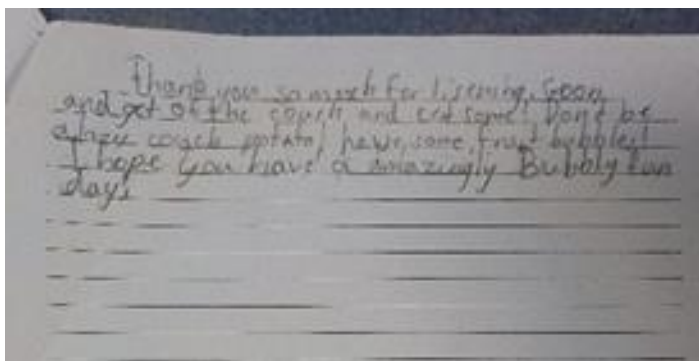 Thank you so much for lisening, Goon
and get of the couch and eat some! Don't be
a couch potato! have some fruit bubbles!
I hope you have a amazingly Bubbly fun
day,